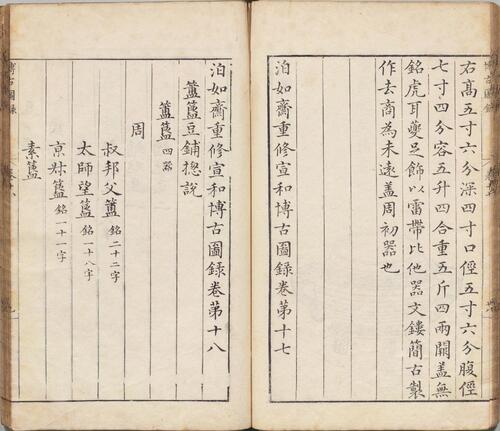 右高五寸六分深四寸口徑五寸六分腹徑
七寸四分容五升四合重五斤四兩闕蓋無
銘虎耳夔足飾以雷帶比他器文鏤簡古製
作去商為未遠蓋周初器也
泊如齋重修宣和博古圖錄卷第十七
泊如齋重修宣和博古圖錄卷第十八
簠簋豆鋪摠說
簠簋四器
周
叔邦父簠銘二十二字
太師望簋銘一十八字
京簋銘一十一字
素簋
博古圖錄